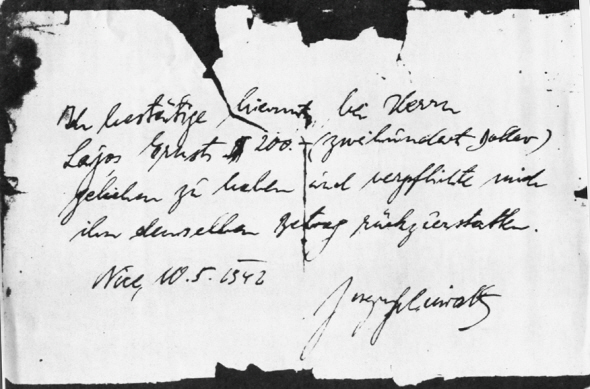 Ich bestätige hiermit, bei Herrn
Lajos Ernst $ 200.- (zweihundert Dollar)
geliehen zu haben und verpflichte mich
ihm denselben Betrag rückzuerstatten.
Nice, 10.5.1942